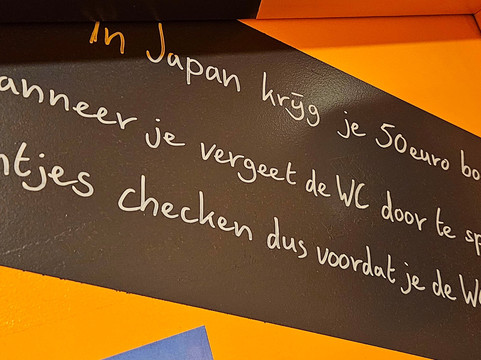 In Japan krijg je 50euro bo
anneer je vergeet de WC door te sp
ntjes checken dus voordat je de W